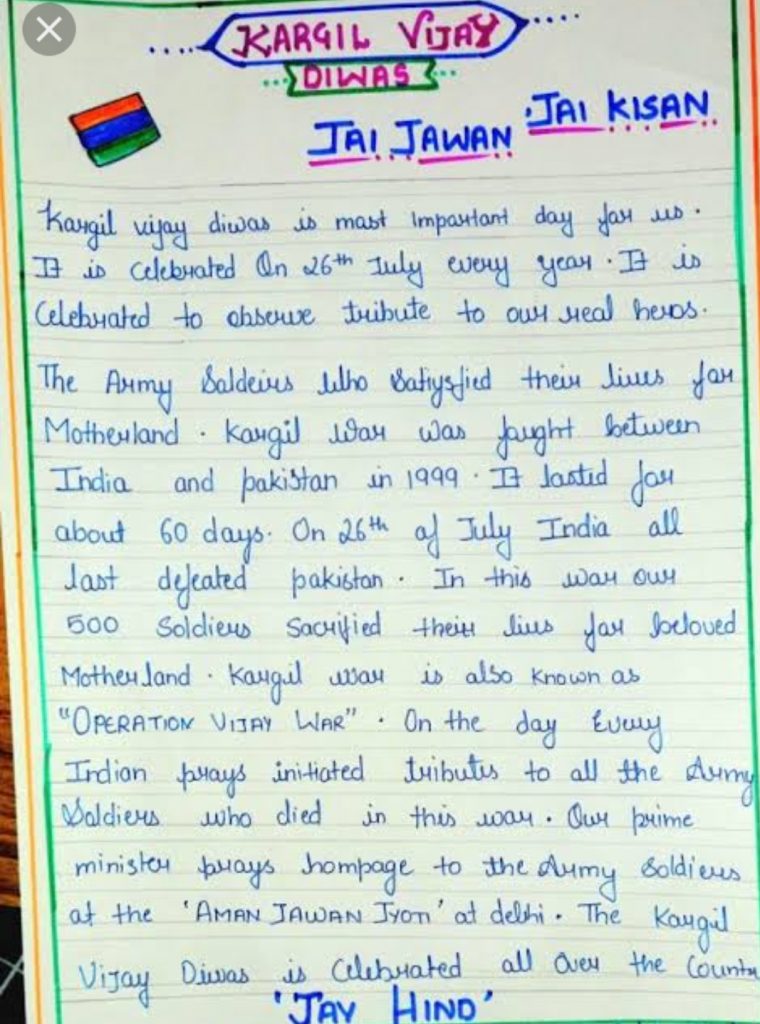 KARGIL VIJAY
DIWAS
JAI JAWAN . JAI KISAN
Kargil vijay diwas is most important day for us.
It is celebrated On 26th July every year. It is
Celebrated to observe tribute to our real heros.
The Army Soldeirs who Satiysfied their lives for
Motherland. Kargil war was fought between
India and pakistan in 1999. It lasted for
about 60 days. On 26th of July India all
last defeated pakistan. In this war our
500 Soldiers Sacrified their lives for beloved
Motherland. Kargil war is also known as
"OPERATION VIJAY WAR". On the day Every
Indian prays initiated tributes to all the Army
Soldiers who died in this war. Our prime
minister prays hompage to the Army Soldiers
at the 'AMAN JAWAN JYOTI' at delhi. The Kargil
Vijay Diwas is Celebrated all Over the Country
'JAY HIND'